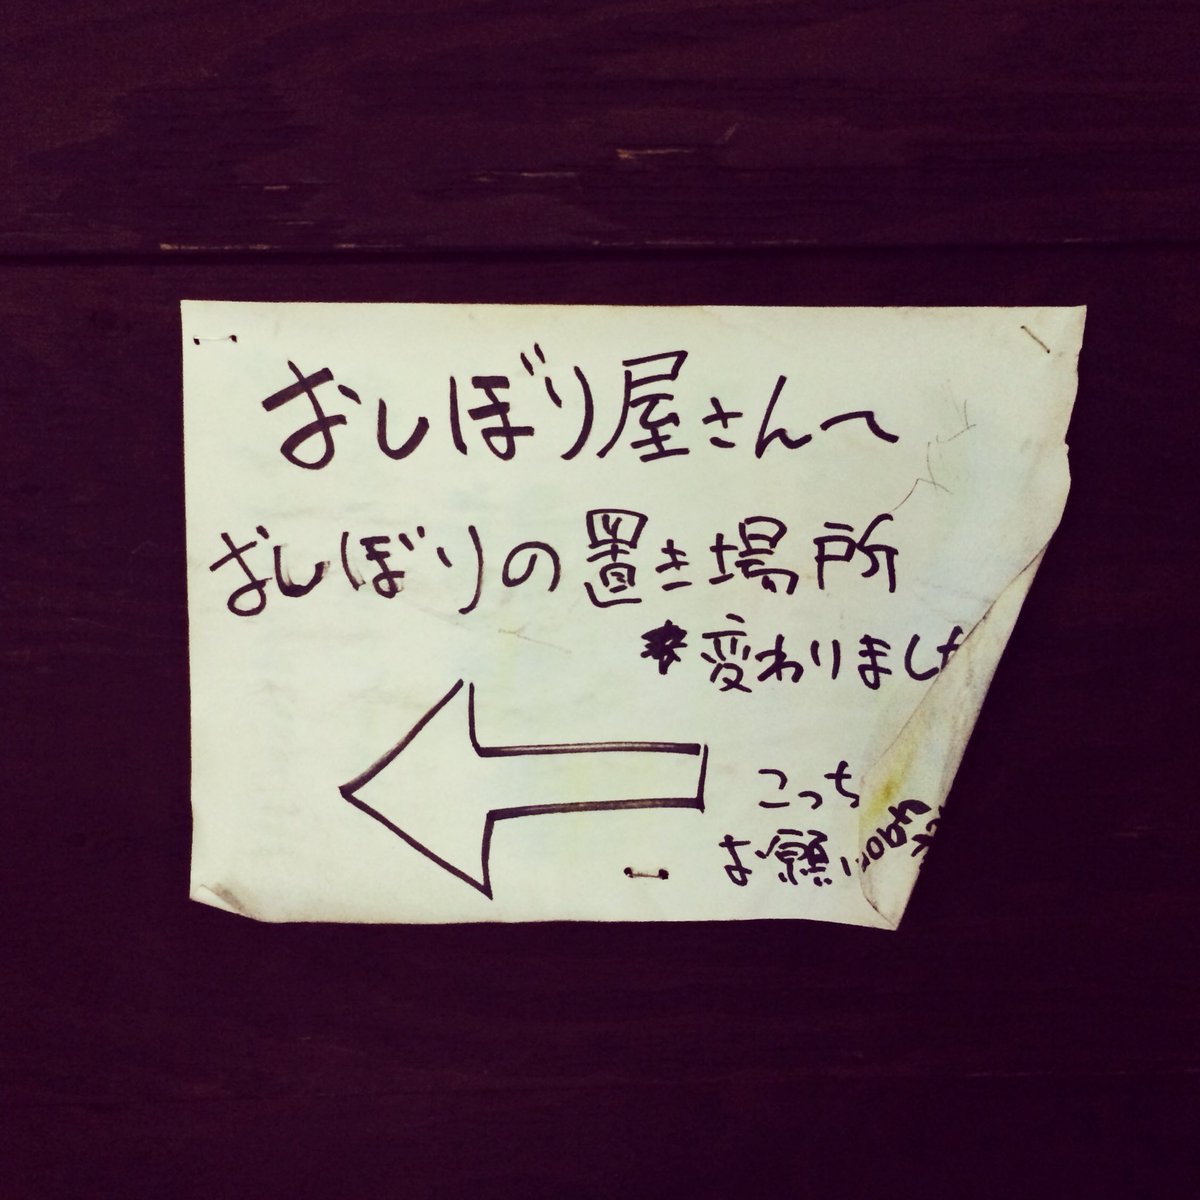 おしぼり屋さんへ
おしぼりの置き場所
*変わりました
こっち
お願い